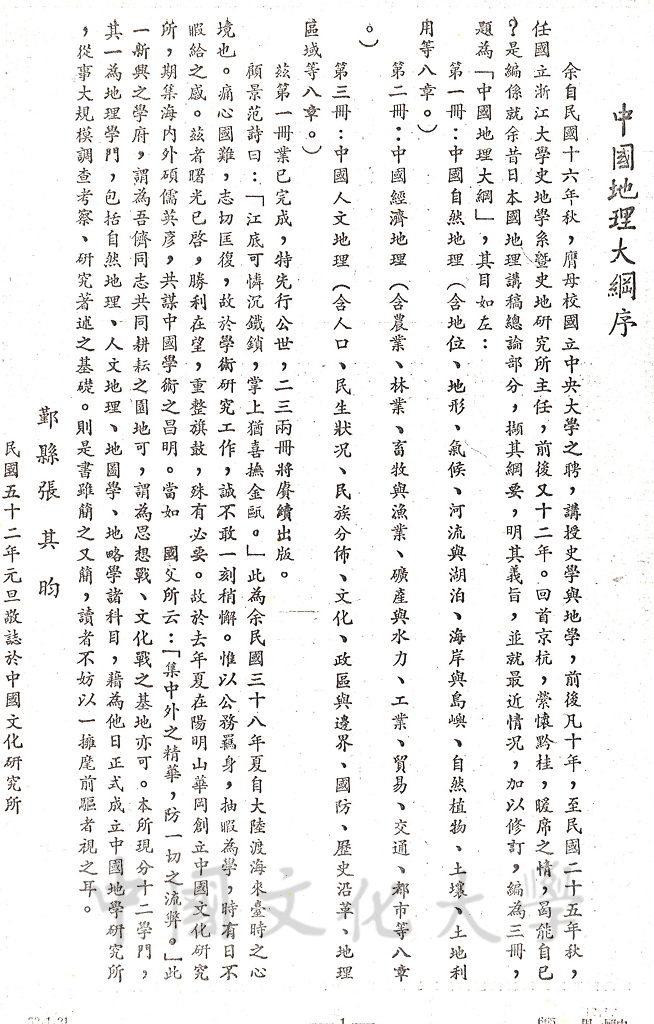 中國地理大綱序
余自民國十六年秋，膺母校國立中央大學之聘，講授史學與地學，前後凡十年，至民國二十五年秋，
任國立浙江大學史地學系暨史地研究所主任，前後又十二年。回首京杭，縈懷黔桂，暖席之情，曷能自已
？是編係就余昔日本國地理講稿總論部分，擷其綱要，明其義旨，並就最近情況，加以修訂，編為三冊，
題為「中國地理大綱」，其目如左：
第一冊：中國自然地理（含地位、地形、氣候、河流與湖泊、海岸與島嶼、自然植物、土壤、土地利
用等八章。）
第二冊：中國經濟地理（含農業、林業、畜牧與漁業、礦產與水力、工業、貿易、交通、都市等八章
。）
第三冊：中國人文地理（含人口、民生狀況、民族分佈、文化、政區與邊界、國防、歷史沿革、地理
區域等八章。）
茲第一冊業已完成，特先行公世，二三兩冊將賡續出版。
顧景范詩曰：「江底可憐沉鐵鎖，掌上猶喜撫金甌。」此為余民國三十八年夏自大陸渡海來臺時之心
境也。痛心國難，志切匡復，故於學術研究工作，誠不敢一刻稍懈。惟以公務羈身，抽暇為學，時有日不
暇給之感。茲者曙光已啓，勝利在望，重整旗鼓，殊有必要。故於去年夏在陽明山華岡創立中國文化研究
所，期集海內外碩儒英彥，共謀中國學術之昌明。當如　國父所云：「集中外之精華，防一切之流弊。」此
一新興之學府，謂為吾儕同志共同耕耘之園地可，謂為思想戰、文化戰之基地亦可。本所現分十二學門，
其一為地理學門，包括自然地理、人文地理、地圖學、地略學諸科目，藉為他日正式成立中國地學研究所
，從事大規模調查考察、研究著述之基礎。則是書雖簡之又簡，讀者不妨以一擁麾前驅者視之耳。
鄞縣張其昀
民國五十二年元旦敬誌於中國文化研究所
中國文化大學
1